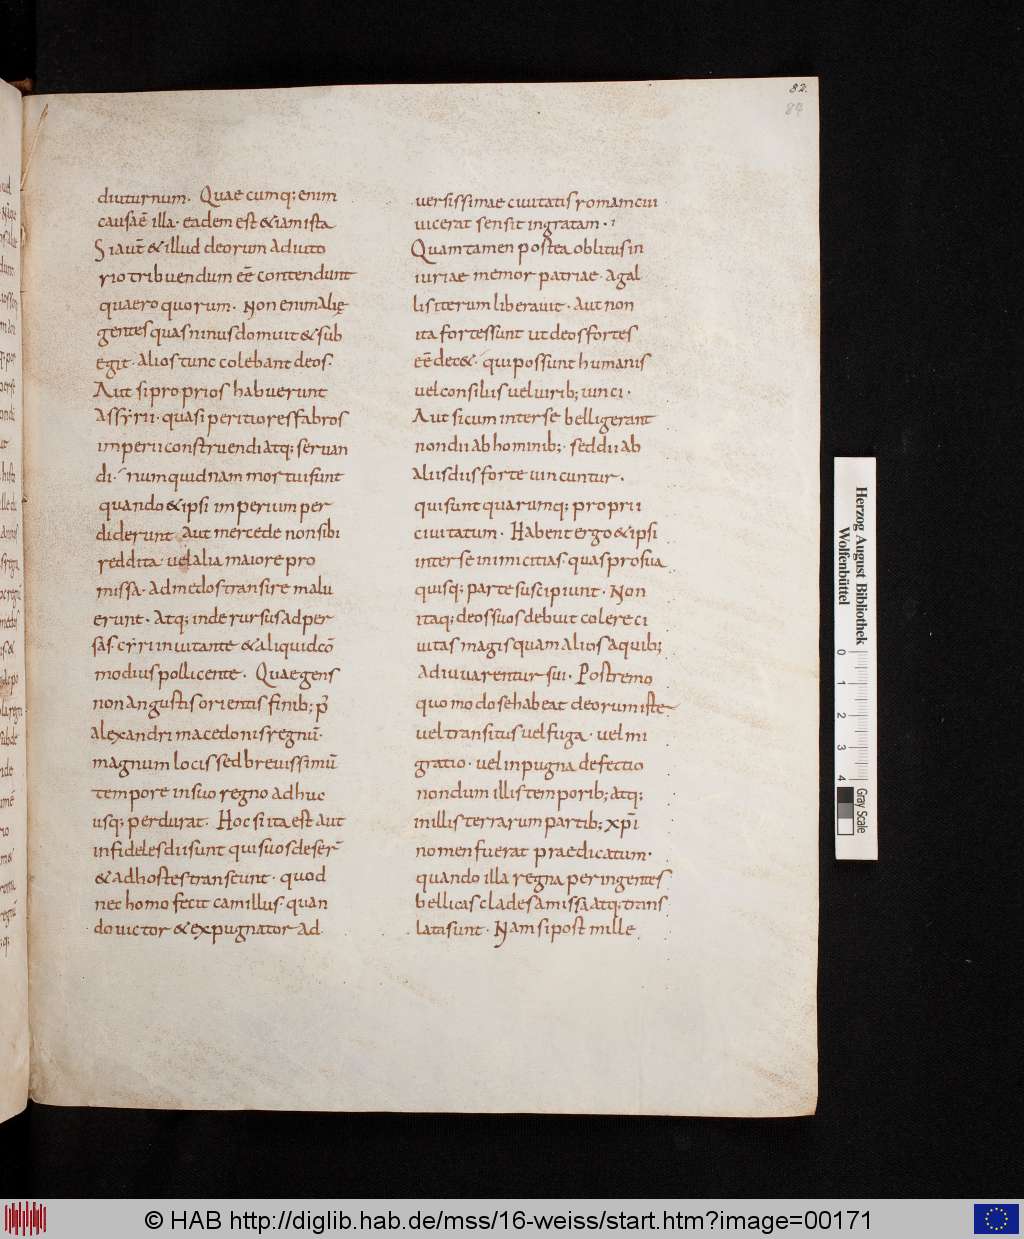 82.
84
diuturnum. Quae cumq; enim
causa ē illa. eadem est & iam ista
Si aut̄ & illud deorum adiuto
rio tribuendum eē contendunt
quaero quorum. Non enim alię
gentes quas ninus domuit & sub
egit. alios tunc colebant deos.
Aut si proprios habuerunt
assyrii. quasi peritiores fabros
imperii construendi atq; seruan
di. numquidnam mortui sunt
quando & ipsi imperium per
diderunt aut mercede non sibi
reddita uel alia maiore pro
missa. ad medos transire malu
erunt. Atq; inde rursus ad per
sas. cyri inuitante & aliquid cō
modius pollicente. Quae gens
non angustis orientis finib; p̄
alexandri macedonis regnū.
magnum locis sed breuissimū
tempore in suo regno adhuc
usq; perdurat. Hoc si ita est aut
infideles dii sunt qui suos deser̄
& ad hostes transeunt. quod
nec homo fecit camillus. quan
do uictor & expugnator ad
uersissimae ciuitatis romam cui
uicerat sensit ingratam.
Quam tamen postea oblitus in
iuriae memor patriae. a gal
lis iterum liberauit. Aut non
ita fortes sunt ut deos fortes
eē dec&. qui possunt humanis
uel consiliis uel uirib; uinci.
Aut si cum inter se belligerant
non dii ab hominib;. sed dii ab
aliis diis forte uincuntur.
qui sunt quarumq; proprii
ciuitatum. Habent ergo & ipsi
inter se inimicitias. quas pro sua
quisq; parte suscipiunt. Non
itaq; deos suos debuit colere ci
uitas magis quam alios a quib;
adiuuarentur sui. Postremo
quomodo se habeat deorum iste
uel transitus uel fuga. uel mi
gratio. uel in pugna defectio
nondum illis temporib; atq;
in illis terrarum partib; xp̄i
nomen fuerat praedicatum.
quando illa regna per ingentes
bellicas clades amissa atq; trans
lata sunt. Nam si post mille
Herzog August Bibliothek
Wolfenbüttel
0 1 2 3 4
Gray Scale
© HAB http://diglib.hab.de/mss/16-weiss/start.htm?image=00171